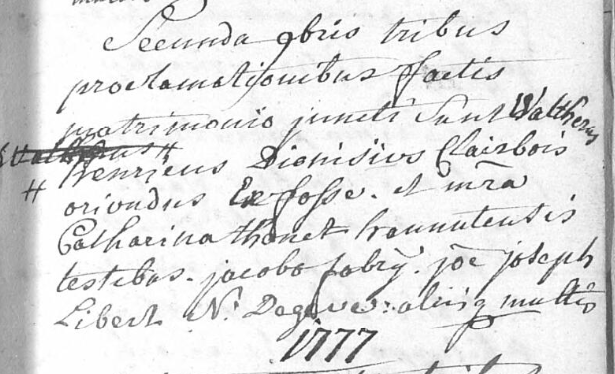 Secunda 9bris tribus
proclamationibus factis
matrimonio juncti sunt Waltherus
Henricus Dionisius Clairbois
oriundus Ex fosse. et mra
Catharina thonet hannutensis
testibus. jacobo fabry. joe joseph
Libert N. aliisq multis
1777